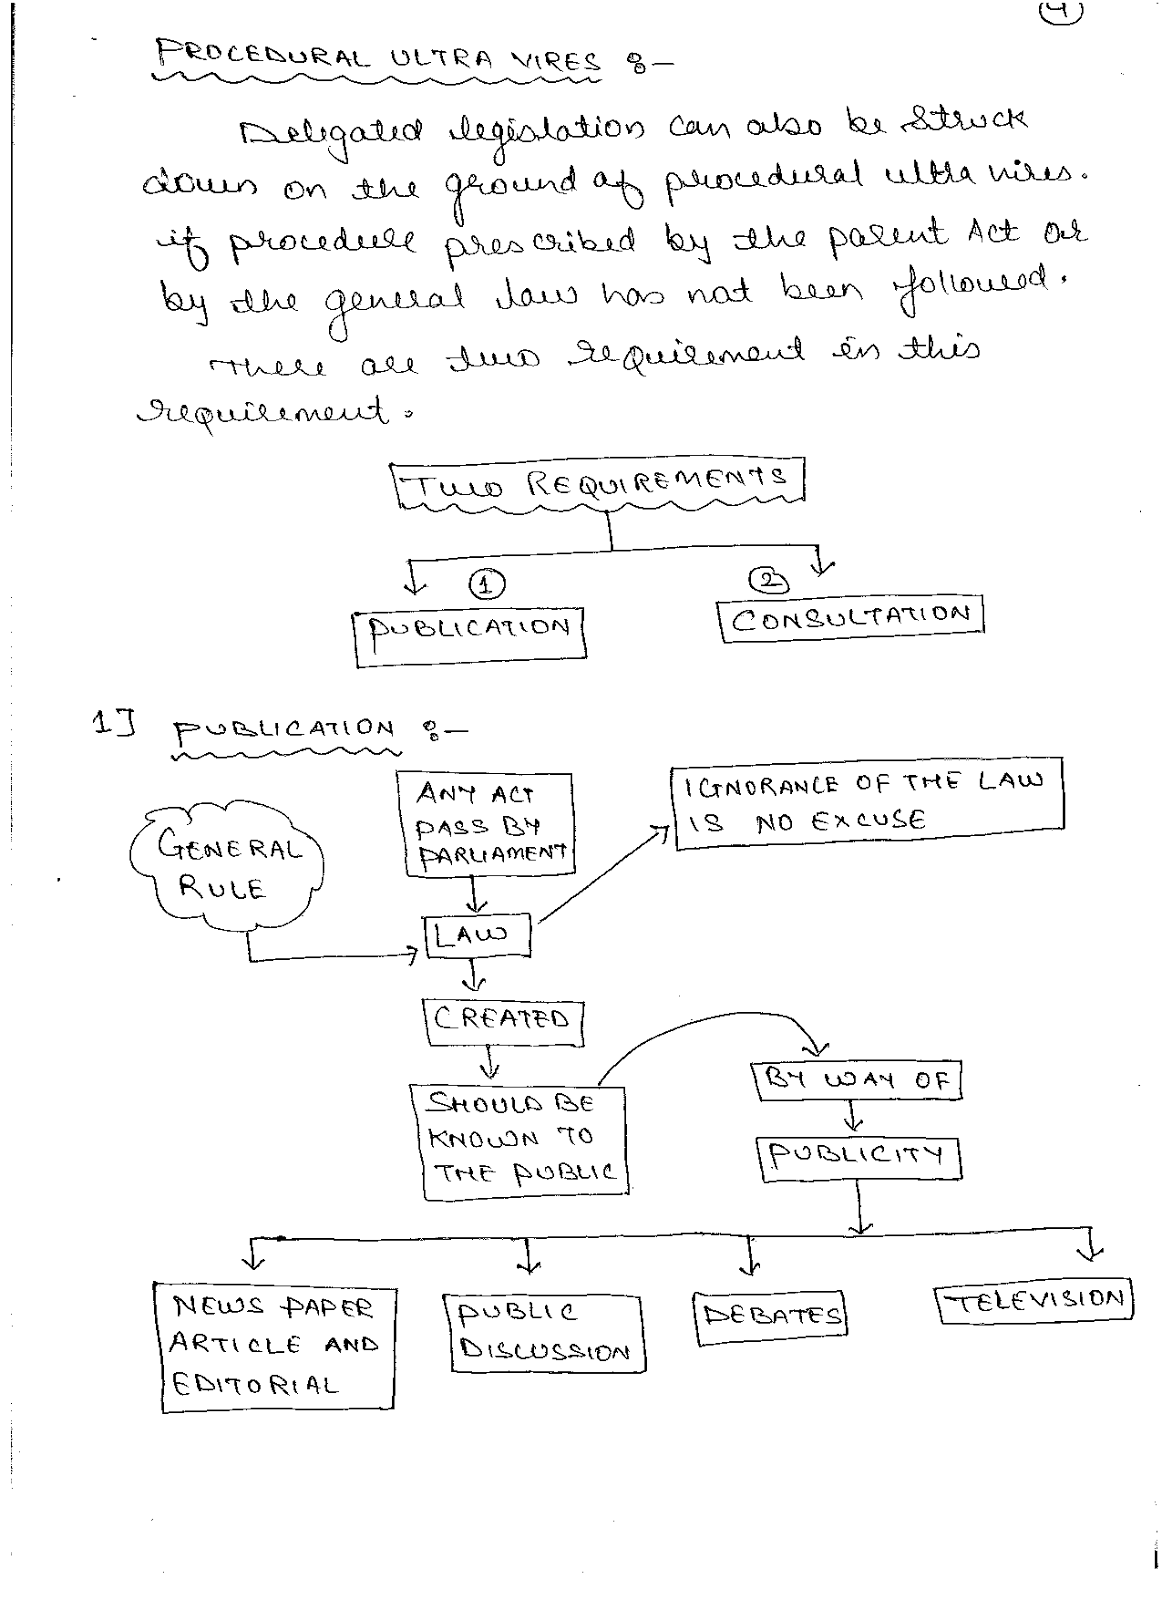 4
PROCEDURAL ULTRA VIRES :-
Delegated legislation can also be struck
down on the ground of procedural ultra vires.
if procedure prescribed by the parent Act or
by the general law has not been followed.
There are two requirement in this
requirement.
TWO REQUIREMENTS
1
2
PUBLICATION
CONSULTATION
1] PUBLICATION :-
GENERAL
RULE
ANY ACT
PASS BY
PARLIAMENT
IGNORANCE OF THE LAW
IS NO EXCUSE
LAW
CREATED
SHOULD BE
KNOWN TO
THE PUBLIC
BY WAY OF
PUBLICITY
NEWS PAPER
ARTICLE AND
EDITORIAL
PUBLIC
DISCUSSION
DEBATES
TELEVISION